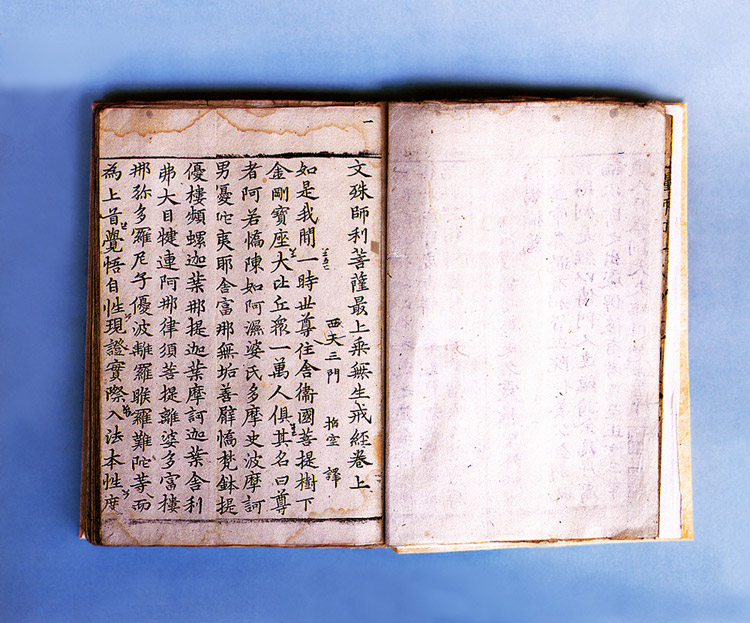 一
文殊師利菩薩最上乘無生戒經卷上
西天三門 指空 譯
如是我聞一時世尊往舍衛國菩提樹下
金剛寶座大比丘衆一萬人俱其名曰尊
者阿若憍陳如阿濕婆氏多摩史波摩訶
男憂咜夷耶舍富那無垢善臂憍梵鉢提
優樓頻螺迦葉那提迦葉摩訶迦葉舍利
弗大目犍連阿那律須菩提離婆多富樓
那弥多羅尼子優波離羅睺羅難陀等而
為上首覺悟自性現證實際入法本性度